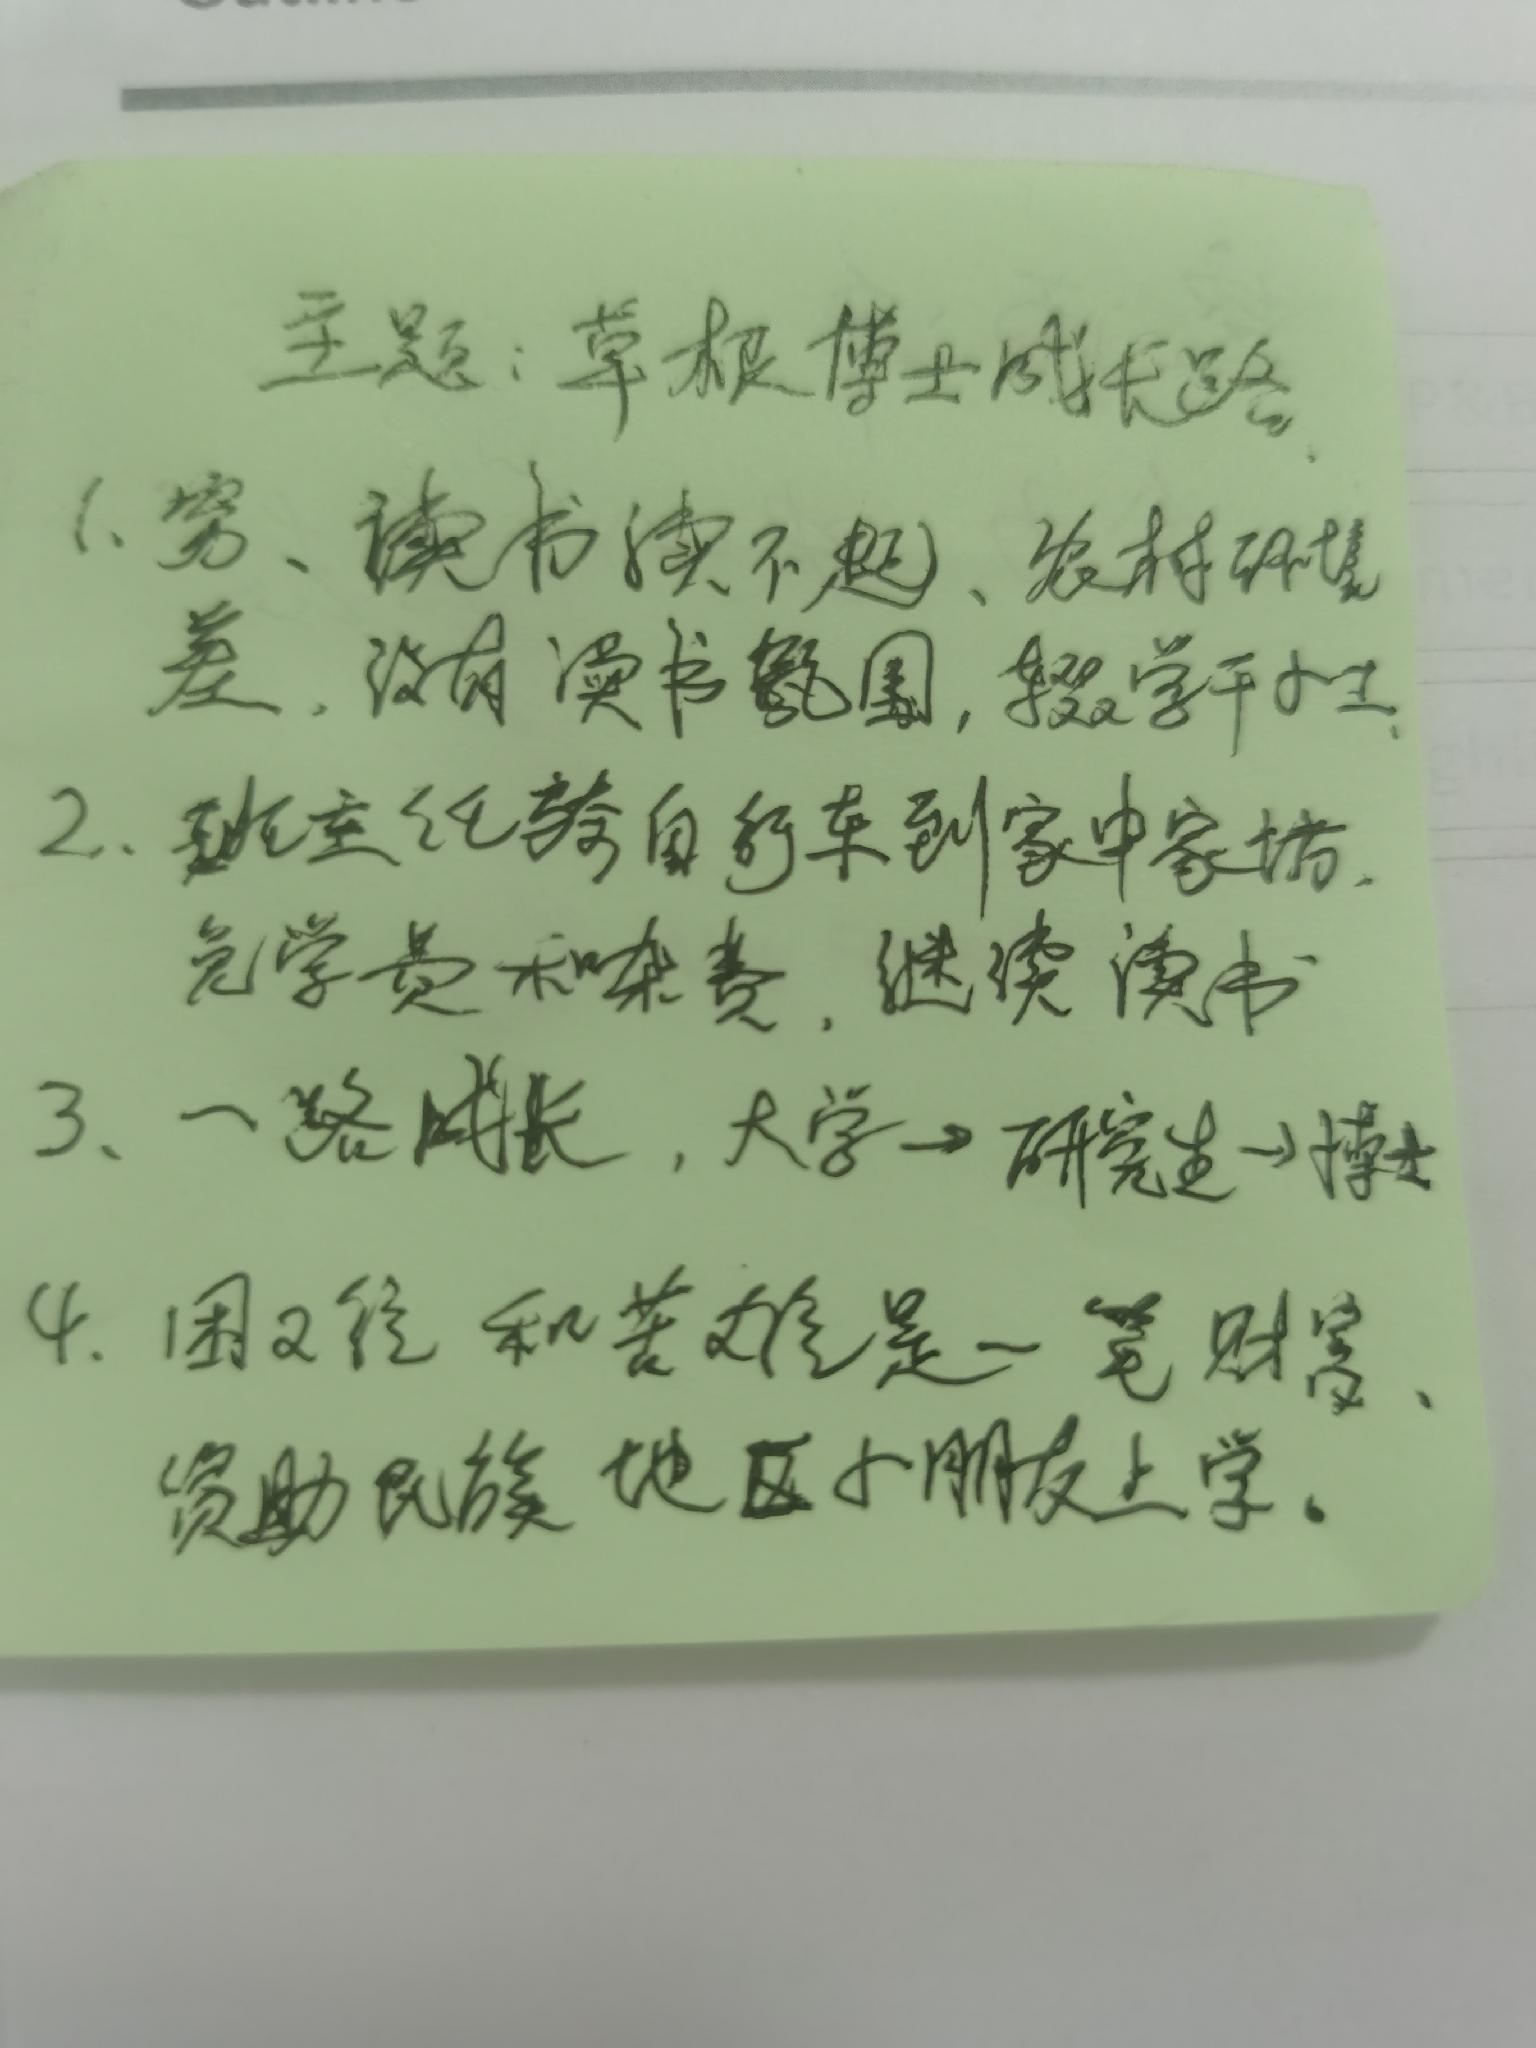 Outline
主题：草根博士成长路.
1、穷、读书读不起、农村环境
差，没有读书氛围，辍学干小工.
2、班主任骑自行车到家中家访.
免学费和杂费，继续读书
3、一路成长，大学→研究生→博士
4.困难和苦难是一笔财富、
资助民族地区小朋友上学。